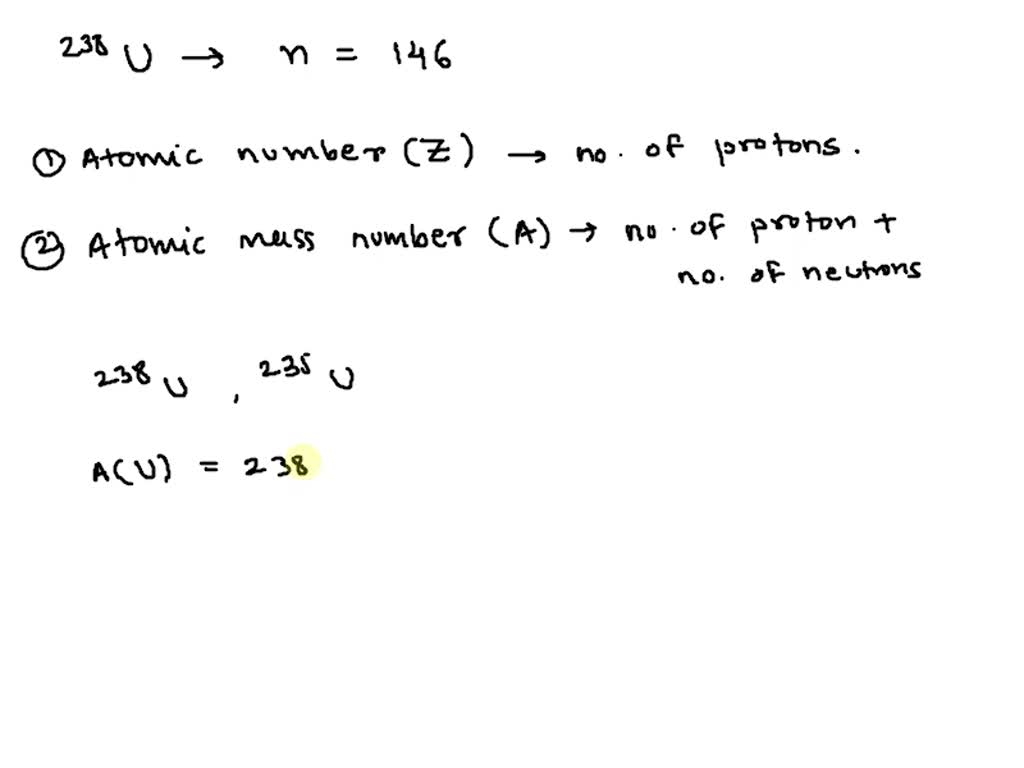 ²³⁸U → n = 146
① Atomic number (Z) → no. of protons.
② Atomic mass number (A) → no. of proton +
no. of neutrons
²³⁸U , ²³⁵U
A(U) = 238